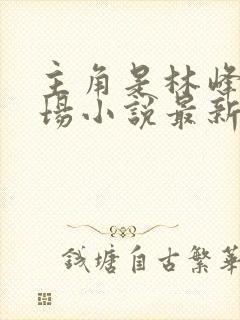 主角是林峰
场小说最新
钱塘自古繁華